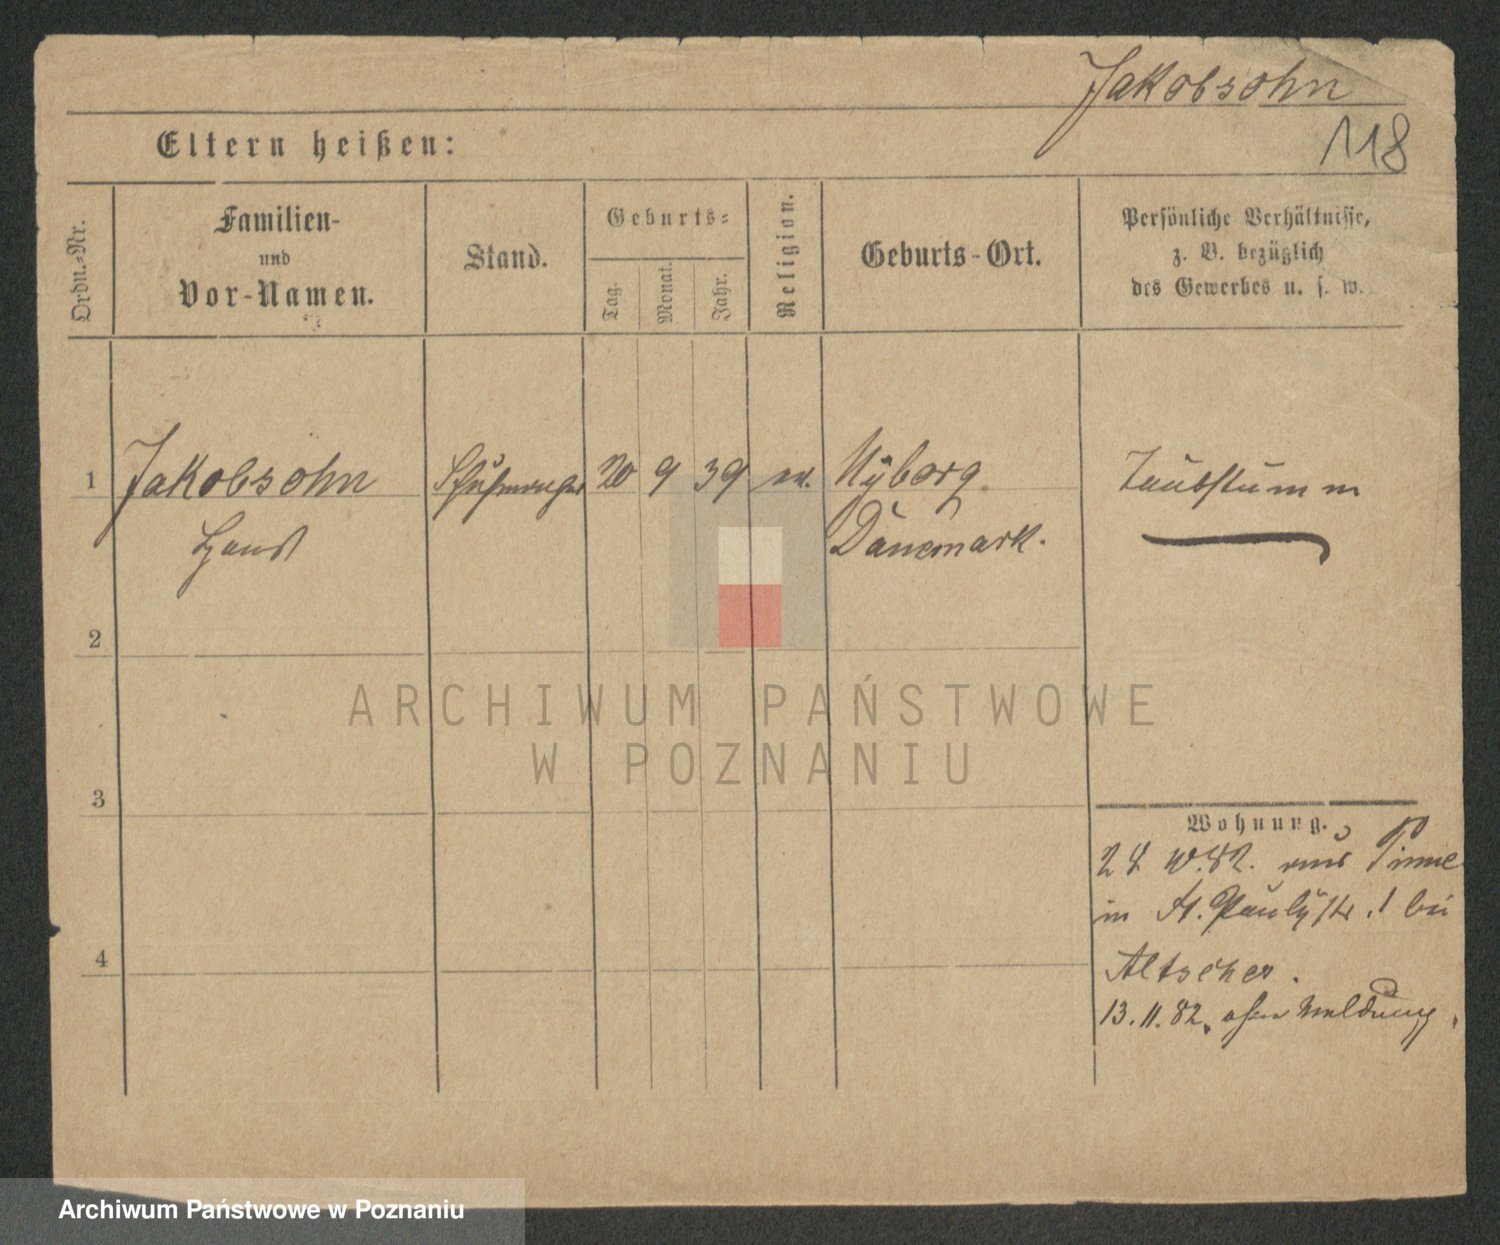 Jakobsohn
118
Eltern heißen:
Ordn.=Nr.
Familien-
und
Vor-Namen.
Stand.
Geburts=
Tag.
Monat.
Jahr.
Religion.
Geburts-Ort.
Persönliche Verhältnisse,
z. B. bezüglich
des Gewerbes u. s. w.
1 Jakobsohn 20 9 39 ev. Nyborg. Taubstumm
Hans Dänemark.
2
ARCHIWUM PAŃSTWOWE
W POZNANIU
3
Wohnung.
82. aus Pinne
in St. Paulystr. 1 bei
4
Altscher.
13.11.82. ohne Meldung.
Archiwum Państwowe w Poznaniu